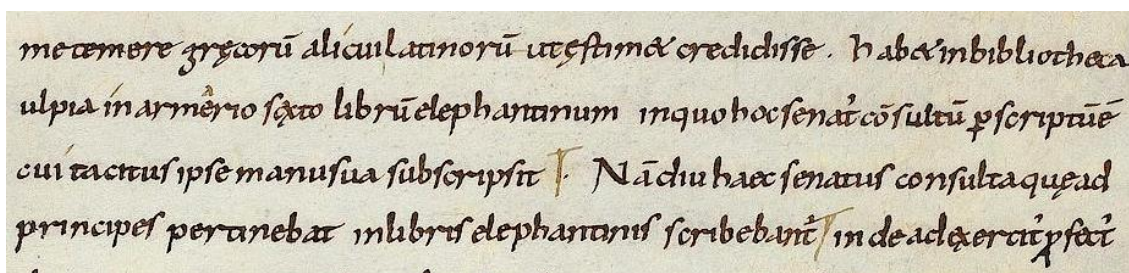 me temere gręcorū alicui latinorū ut ęstimet credidisse . habet in bibliotheca
ulpia in armerio sęxto librū elephantinum in quo hoc senat᾽ cōsultū ꝑscriptū ē
cui tacitus ipse manu sua subscripsit . Nā diu haec senatus consulta quę ad
principes pertinebat in libris elephantinis scribebant᾽ inde ad exercit᾽ ꝓfect᾽